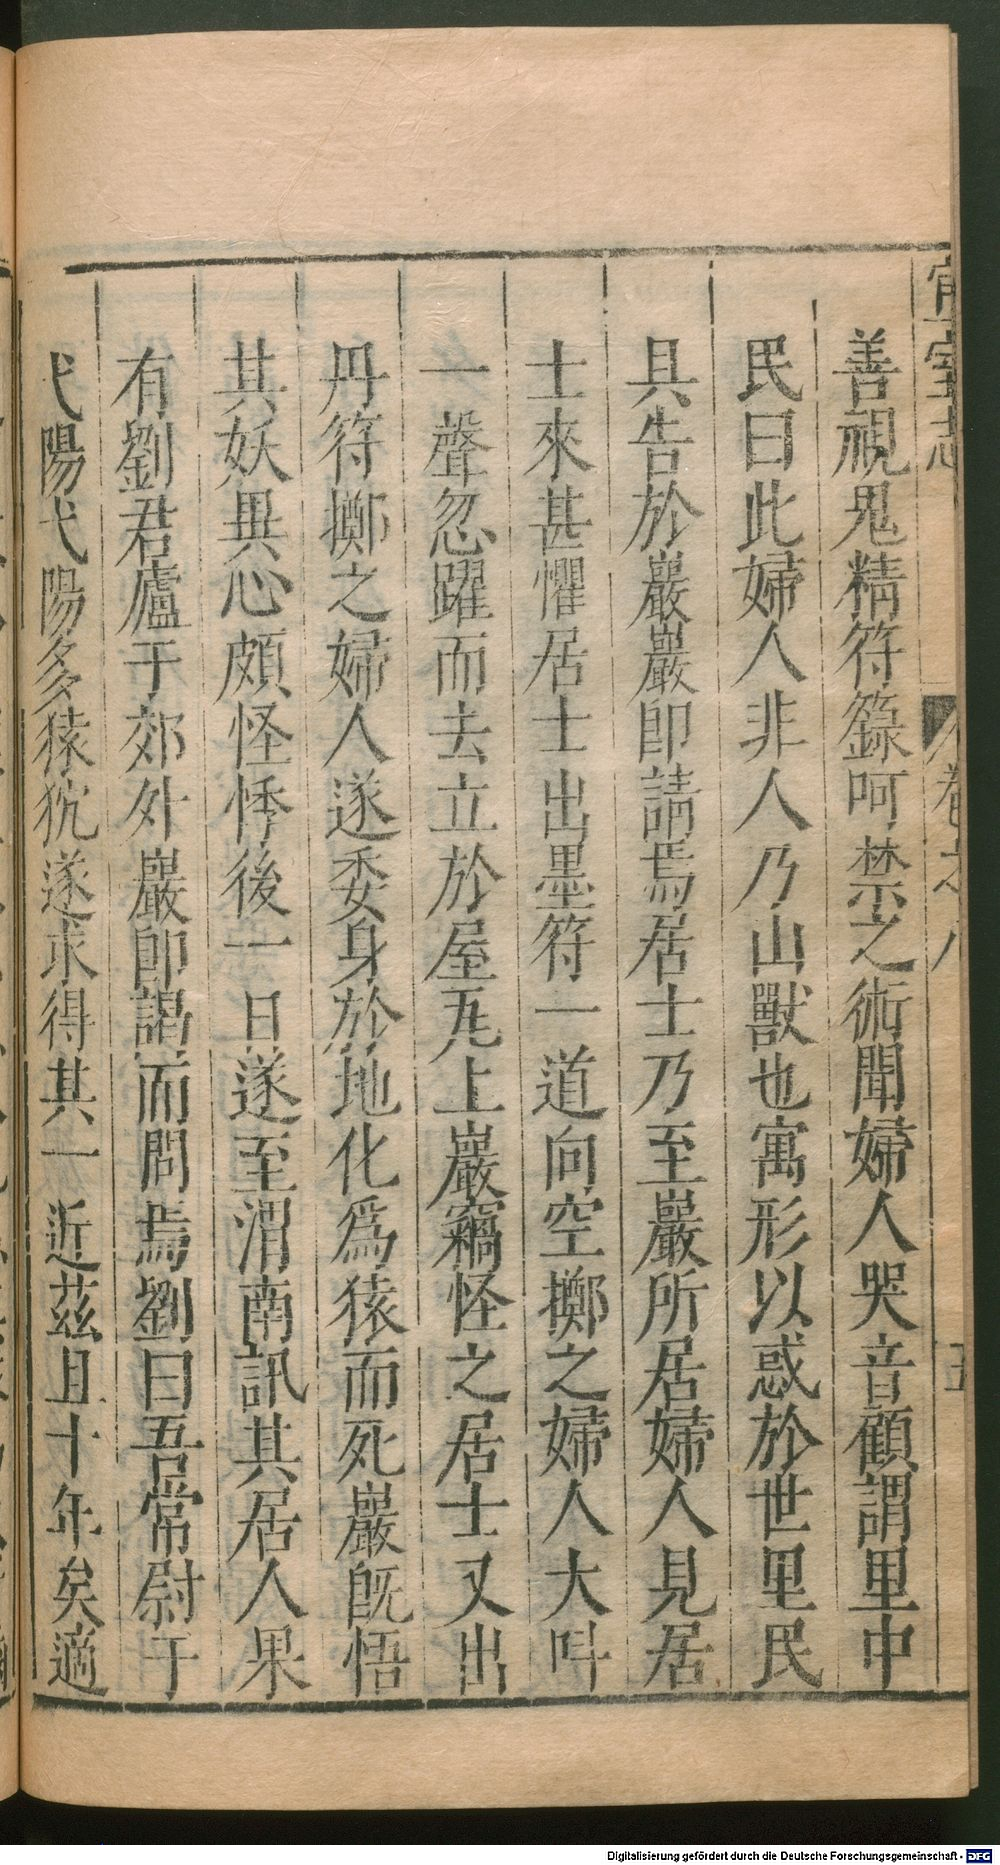 宣室志 卷之八 五
善視鬼精符籙呵禁之術聞婦人哭音顧謂里中
民曰此婦人非人乃山獸也寓形以惑於世里民
具告於巖巖即請焉居士乃至巖所居婦人見居
士來甚懼居士出墨符一道向空擲之婦人大呌
一聲忽躍而去立於屋瓦上巖竊怪之居士又出
丹符擲之婦人遂委身於地化爲猿而死巖旣悟
其妖異心頗怪悸後一日遂至渭南訊其居人果
有劉君廬于郊外巖即謁而問焉劉曰吾常尉于
弋陽弋陽多猿狖遂求得其一近茲且十年矣適
Digitalisierung gefördert durch die Deutsche Forschungsgemeinschaft - DFG